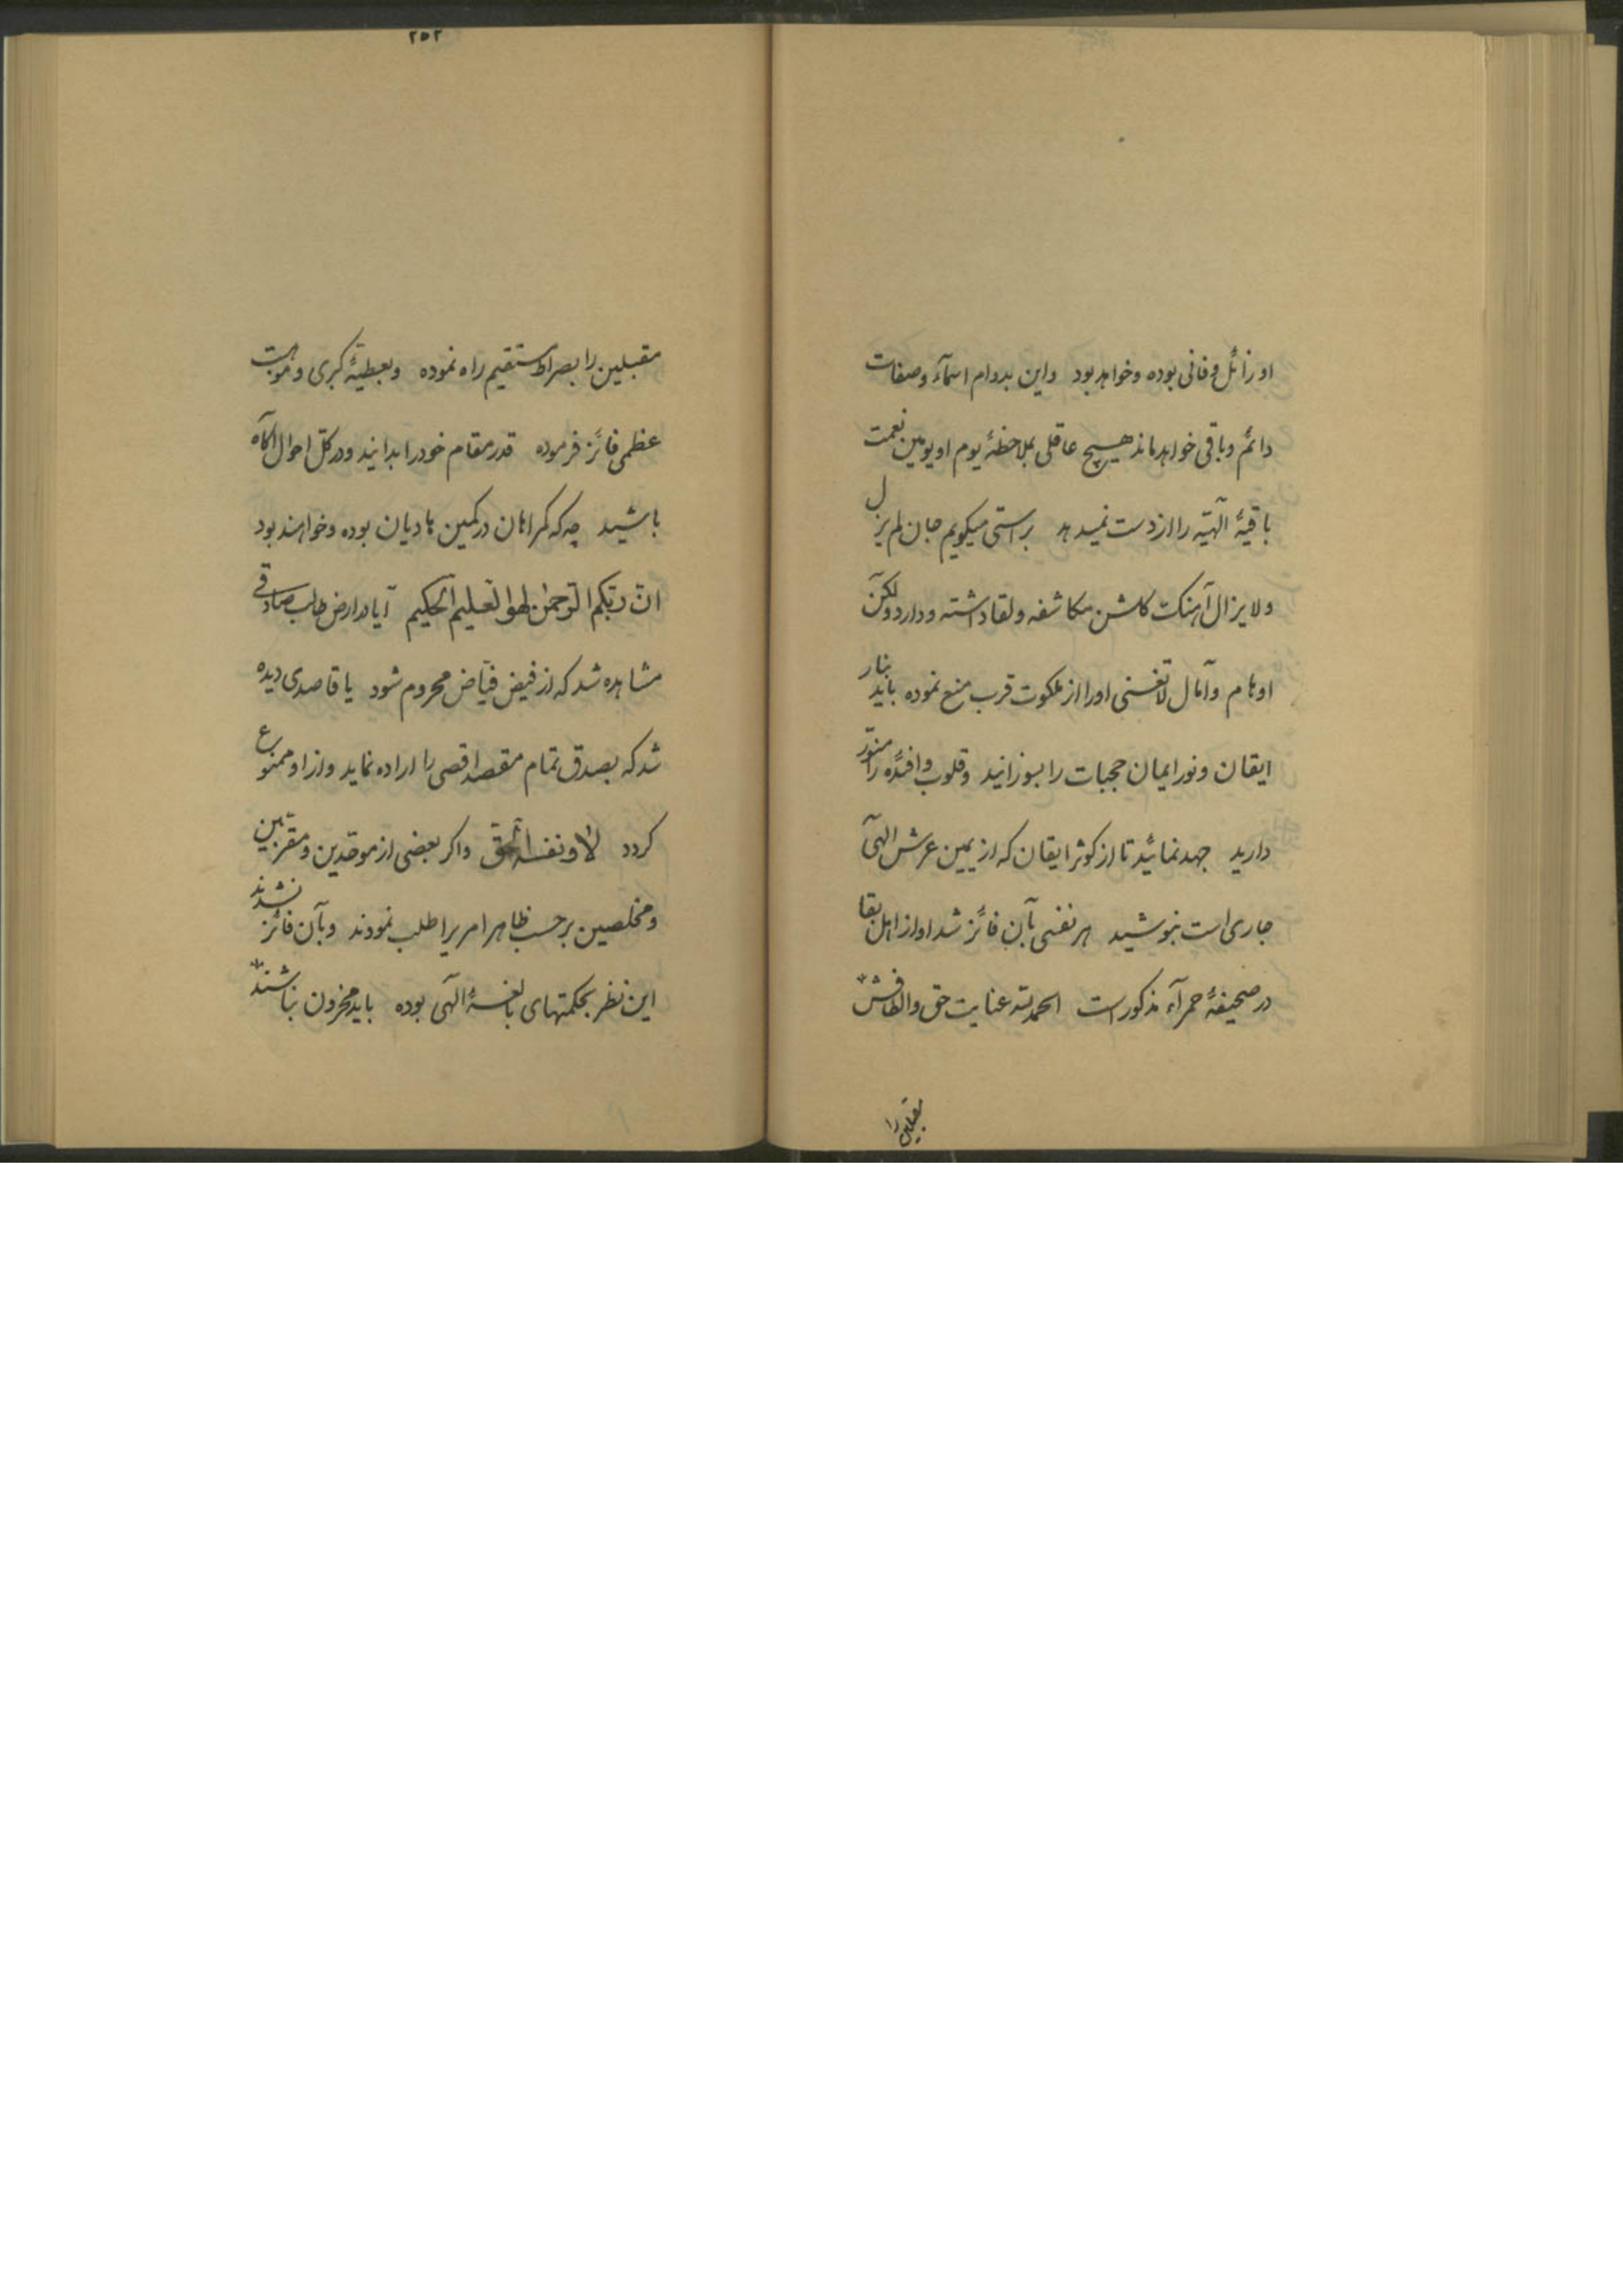 او زائل و فانی بوده و خواهد بود واین بدوام اسمآء وصفات
دائم وباقی خواهد ماند هیچ عاقلی بملاحظهٔ یوم او یومین نعمت
باقیهٔ الهیّه را از دست نمیدهد براستی میکویم جان لم یزل
ولایزال آهنک کلشن مکاشفه ولقا داشته ودارد ولکنّ
اوهام وآمال لاتغنی اورا از ملکوت قرب منع نموده باید بنار
ایقان ونور ایمان حجبات را بسوزانید وقلوب وافئده را منوّر
دارید جهد نمائید تا از کوثر ایقان که از یمین عرش الهی
جاری است بنوشید هر نفسی بآن فائز شد او از اهل بقا
در صحیفهٔ حمرآء مذکور است الحمدلله عنایت حق والطافش
مقبلین را
۲۵۲
مقبلین را بصراط مستقیم راه نموده وبعطیّهٔ کبری وموهبت
عظمی فائز فرموده قدر مقام خود را بدانید ودر کلّ احوال آکاه
باشید چه که کمراهان در کمین هادیان بوده وخواهند بود
انّ ربّکم الرّحمن لهو العلیم الحکیم آیا در ارض طالب صادقی
مشاهده شد که از فیض فیّاض محروم شود یا قاصدی دیده
شد که بصدق تمام مقصد اقصی را اراده نماید واز او ممنوع
کردد لا ونفسه الحقّ واکر بعضی از موحّدین ومقرّبین
ومخلصین بر حسب ظاهر امریرا طلب نمودند وبآن فائز نشدند
این نظر بحکمتهای بالغهٔ الهی بوده باید محزون نباشند